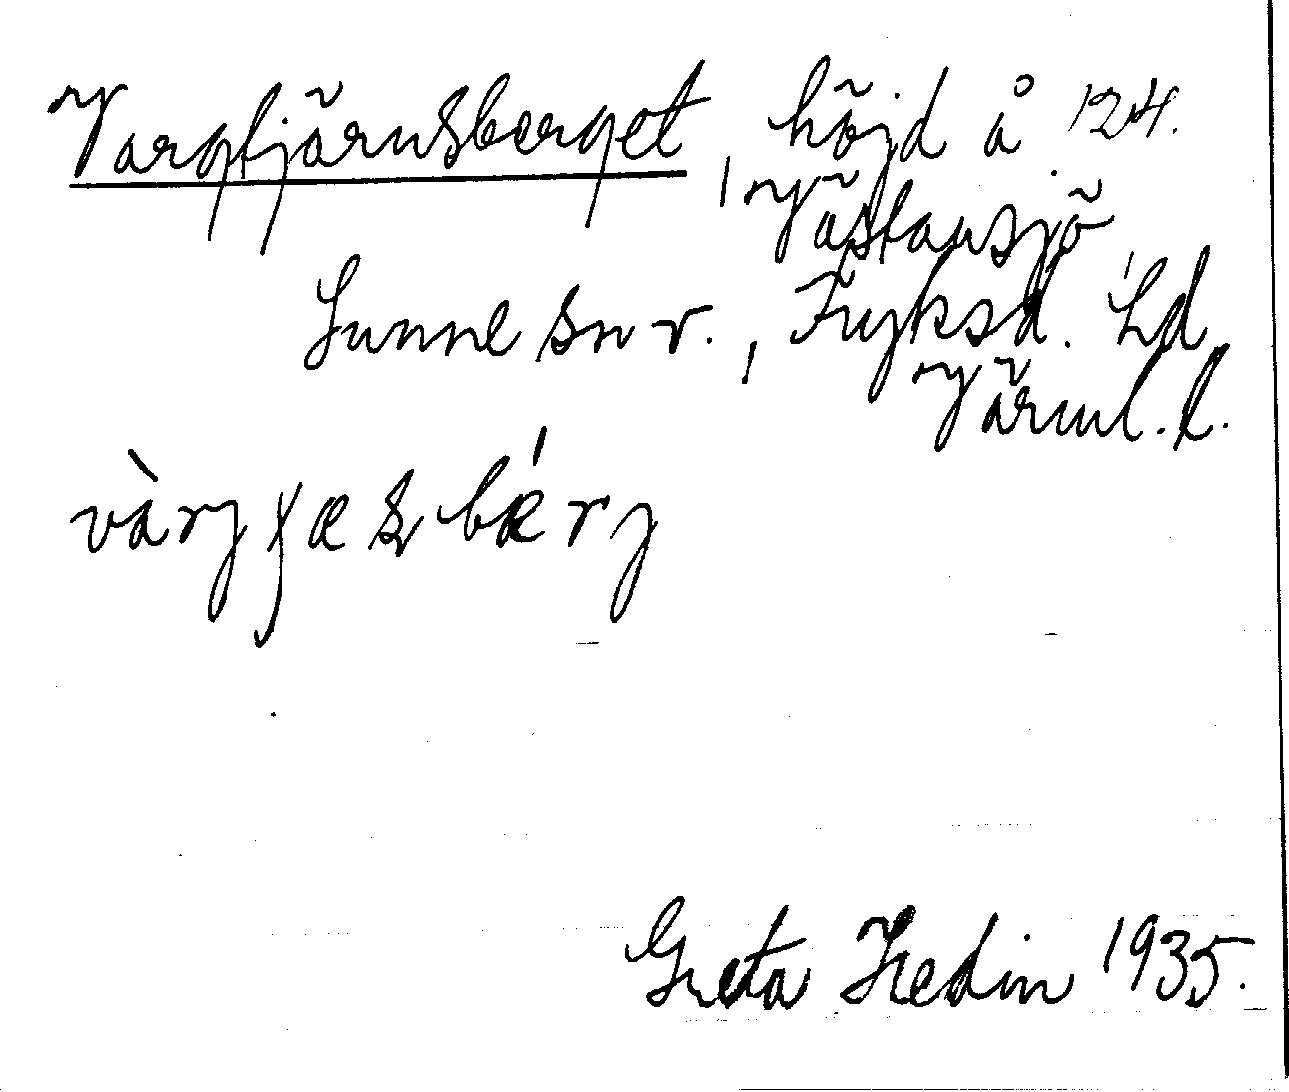 Vargtjärnsberget, höjd å 124.
Västansjö
Sunne sn v., Fryksd. hd
Värml. l.
vàrgçæsbǽrg
Greta Hedin 1935.